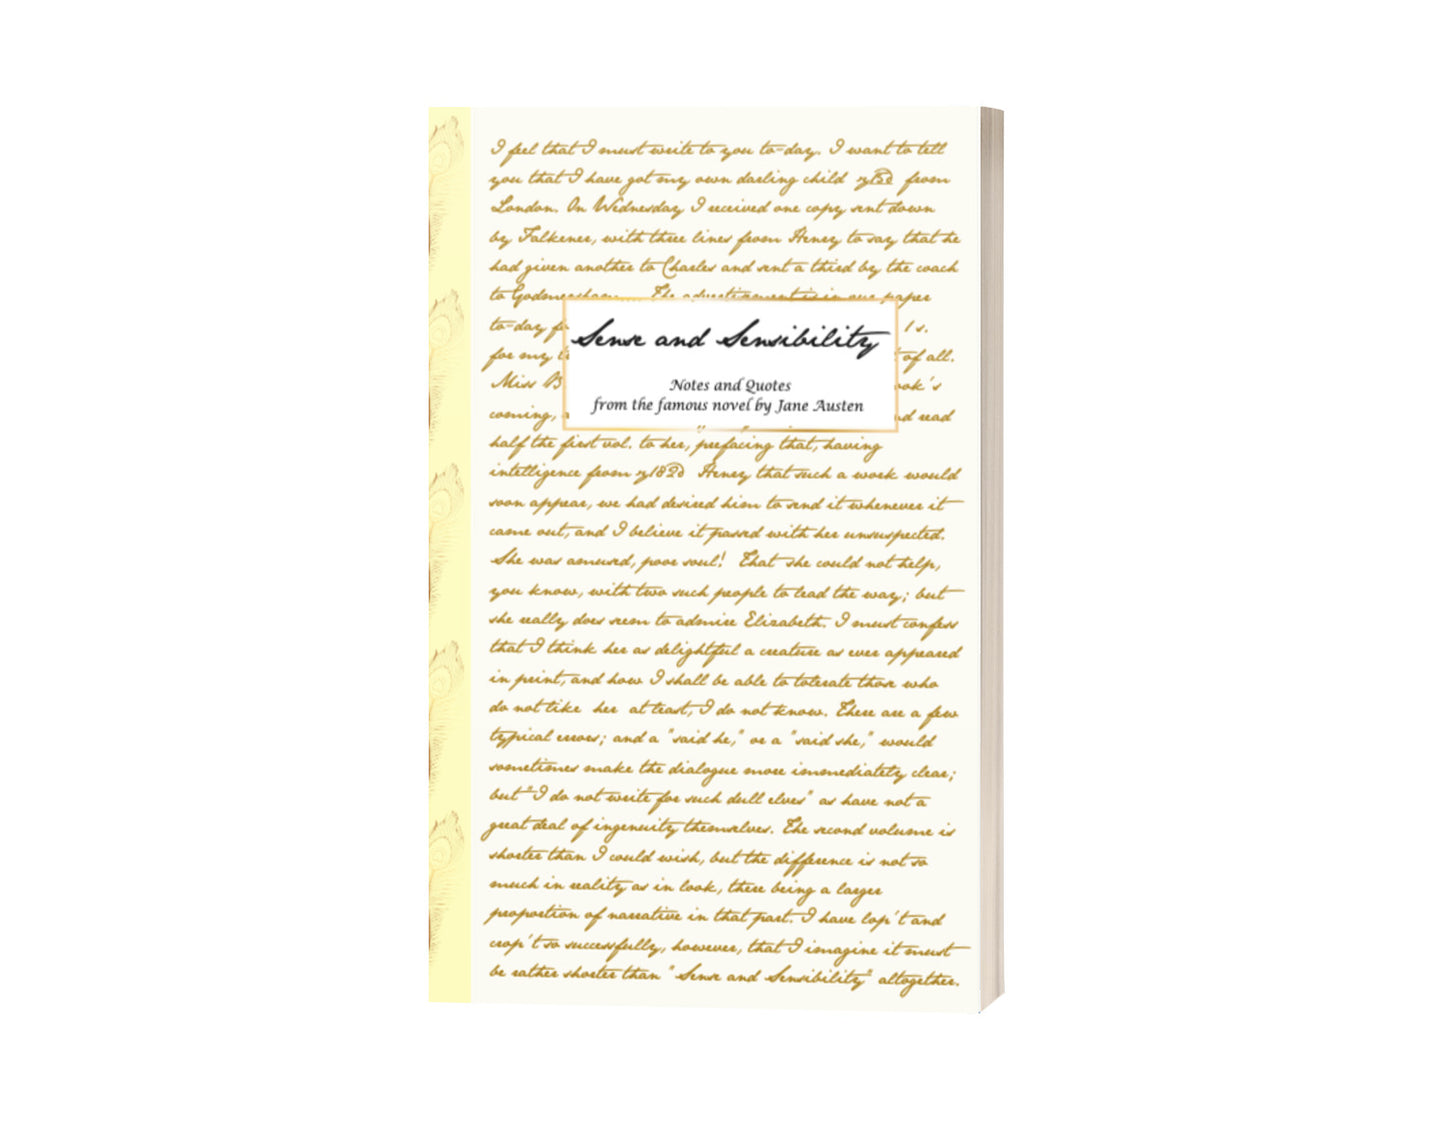 I feel that I must write to you to-day. I want to tell
you that I have got my own darling child from
London. On Wednesday I received one copy sent down
by Falkener, with three lines from Henry to say that he
had given another to Charles and sent a third by the coach
to Godmersham.... The advertisement is in our paper
to-day 1s.
for my of all.
Miss
coming, read
Sense and Sensibility
Notes and Quotes
from the famous novel by Jane Austen
half the first vol. to her, prefacing that, having
intelligence from Henry that such a work would
soon appear, we had desired him to send it whenever it
came out, and I believe it passed with her unsuspected.
She was amused, poor soul! That she could not help,
you know, with two such people to lead the way; but
she really does seem to admire Elizabeth. I must confess
that I think her as delightful a creature as ever appeared
in print, and how I shall be able to tolerate those who
do not like her at least, I do not know. There are a few
typical errors; and a "said he," or a "said she," would
sometimes make the dialogue more immediately clear;
but "I do not write for such dull elves" as have not a
great deal of ingenuity themselves. The second volume is
shorter than I could wish, but the difference is not so
much in reality as in look, there being a larger
proportion of narrative in that part. I have lop't and
crop't so successfully, however, that I imagine it must
be rather shorter than "Sense and Sensibility" altogether.